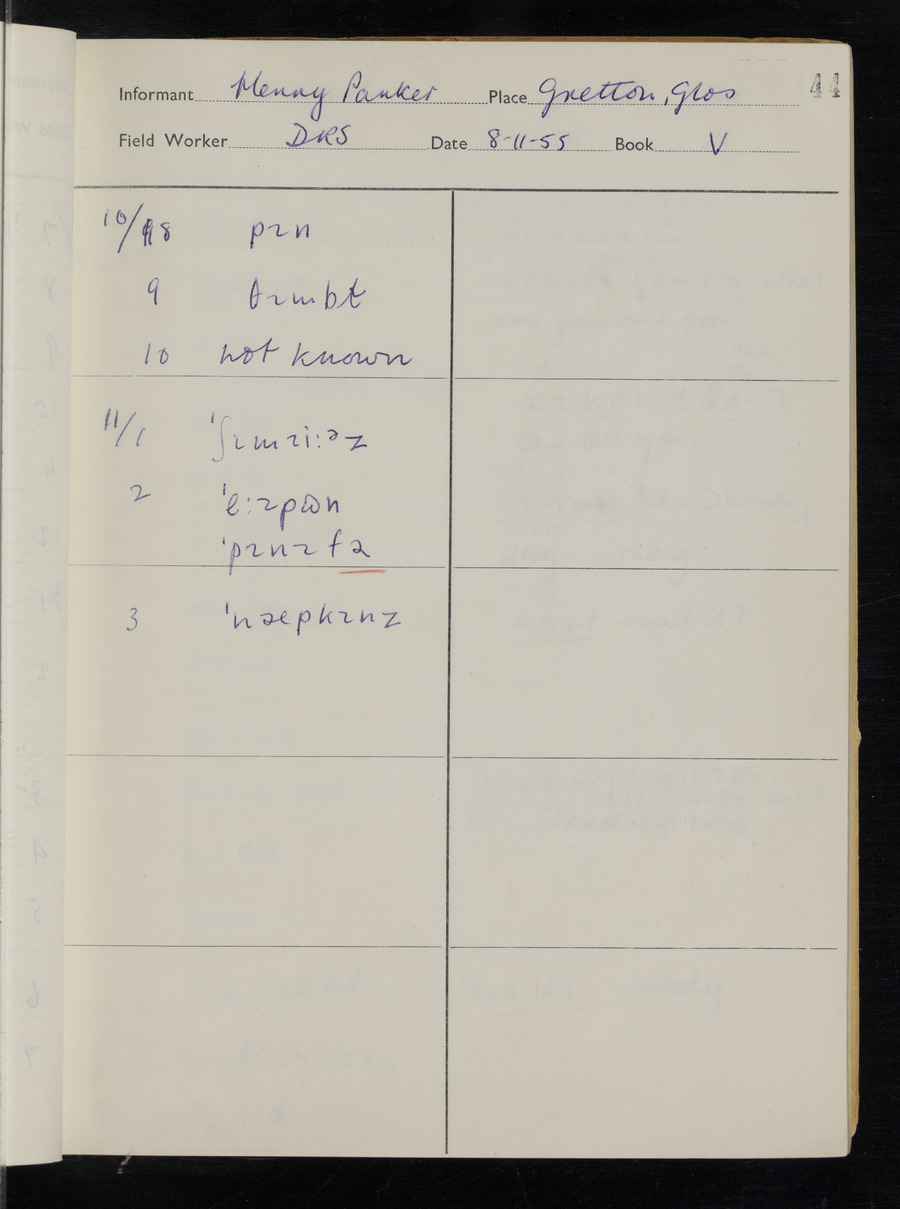 Informant Henry Parker Place Gretton, Glos 44
Field Worker DRS Date 8-11-55 Book V
10/8 pɪn
9 θɪmbɫ
10 not known
11/1 ˈʃɪmɪi:əz
2 ˈe:ɪpɷn
ˈpɪnɪfə
3 ˈnæpkɪnz